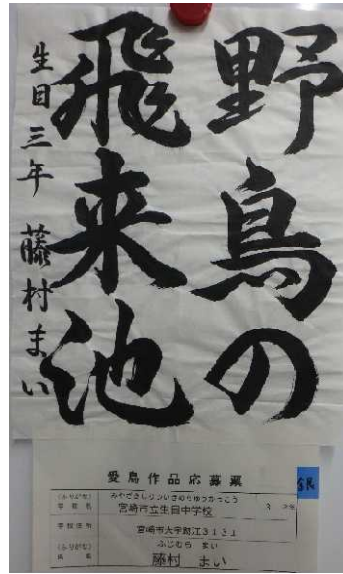 野鳥の
飛来池
生目三年 藤村まい
愛鳥作品応募票
(ふりがな) みやざきしりついきめちゅうがっこう
学校名 宮崎市立生目中学校 3 学年
学校住所 宮崎市大字跡江3131
(ふりがな) ふじむら まい
氏名 藤村 まい